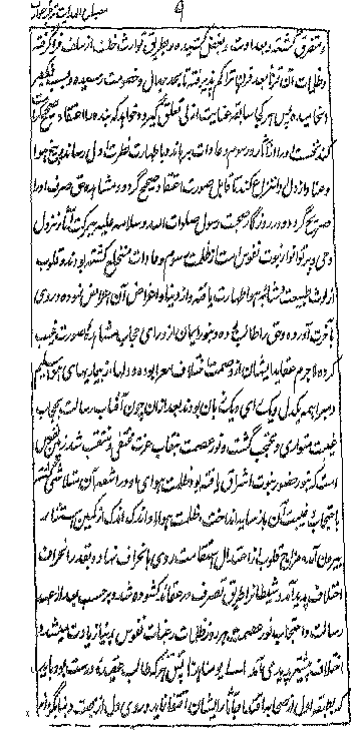 ۹
و متفرق گشته و بعداوت و بغض کشیده و بطریق توارث خلف از سلف فرا گرفته
و ظلمات آن قرنا بعد قرن تراکم پذیرفته تا بحد جدال و خصومت رسیده و بسب و تکفیر
انجامیده پس هر کجا سابقه عنایت ازلی تعلق گیرد و خواهد که بنده را اعتقاد صحیح گرداند
کند نخست او را از آثار رسوم و عادات براند و با طهارت فطرت اول رساند و بیخ هوا
و عناد از دل او انتزاع کند تا قابل صورت اعتقاد صحیح گردد و مشاهده حق صرف او را
صریح گردد و در روزگار صحبت رسول صلوات الله و سلامه علیه ببرکت آثار نزول
وحی و پرتو انوار نبوت نفوس امت از ظلمت رسوم و عادات منخلع گشته بودند و قلوب
از لوث طبیعت و شائبه هوا طهارت یافته و از دنیا و اغراض آن اعراض نموده و روی
بآخرت آورده و حق را طالب بوده و بنور ایمان از ورای حجاب مشاهده صورت غیب
کرده لاجرم عقاید ایشان از وصمت اختلاف معرا بود و دلها از بیماریهای هوا سلیم
و سر همه یکدل و یک رای و یک زبان بودند بعد از آن چون آفتاب رسالت بحجاب
غیبت متواری و محتجب گشت و نور عصمت بنقاب عزت مختفی و منتقب شد زمین نفوس
است که بنور حضور نبوت اشراق یافته بود و ظلمت هوای او در اشعه آن متلاشی گشته
باحتجاب و غیبت آن باز سایه انداخت و ظلمت هوا از اندک اندک از کمین استتار
بیرون آمد و مزاج قلوب از اعتدال استقامت روی بانحراف نهاد و بقدر انحراف
اختلاف پدید آمد و شیطان را طریق تصرف در عقاید گشوده شد و بر حسب بعد از عهد
رسالت و احتجاب نور عصمت هر روز ظلمات رغبات نفوس در زیادت میشد و
اختلاف بیشتر پدید می آمد الی یومنا هذا پس هر که طالب عقیده درست بود باید
که بطبقه اول از صحابه اقتدا و بآثار ایشان اقتفا نماید و روی دل از محبت دنیا بگرداند